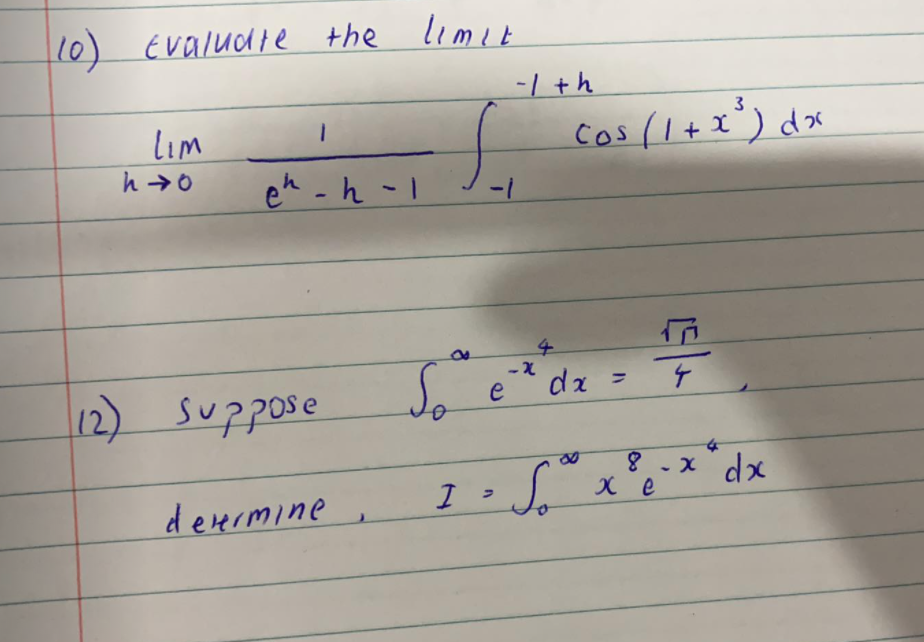 10) Evaluate the limit
lim h→0 1/(e^h - h - 1) ∫_{-1}^{-1+h} cos(1+x^3) dx
12) suppose ∫_0^∞ e^{-x^4} dx = √π/4 ,
determine, I = ∫_0^∞ x^8 e^{-x^4} dx